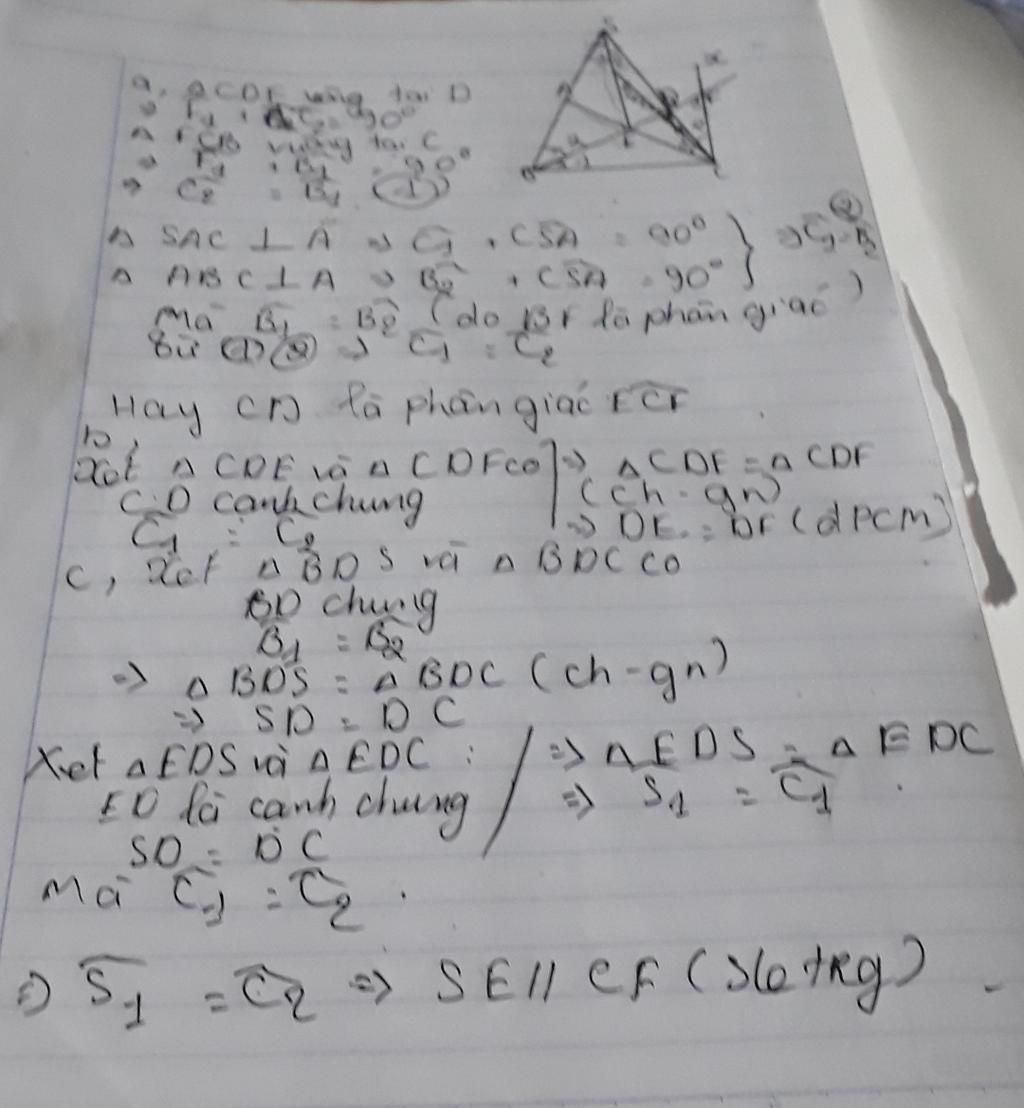 a, Δ CDF vuông tại D
=> F1 + C2 = 90°
Δ FCB vuông tại C
=> F1 + B1 = 90°
=> C2 = B1 (1)
Δ SAC ⊥ A => C1 + CSA = 90°
Δ ABC ⊥ A => B2 + CSA = 90° } => C1 = B2 (2)
Mà B1 = B2 (do BF là phân giác)
Từ (1) (2) => C1 = C2
Hay CD là phân giác ECF
b,
Xét Δ CDE và Δ CDF có => Δ CDF = Δ CDF
CD cạnh chung (ch - gn)
C1 = C2 => DE = DF (đPCM)
c, Xét Δ BDS và Δ BDC có
BD chung
B1 = B2
=> Δ BDS = Δ BDC (ch - gn)
=> SD = DC
Xét Δ EDS và Δ EDC : => Δ EDS = Δ EDC
ED là cạnh chung => S1 = C1
SD = DC
Mà C1 = C2 .
=> S1 = C2 => SE // CF (slo trg)